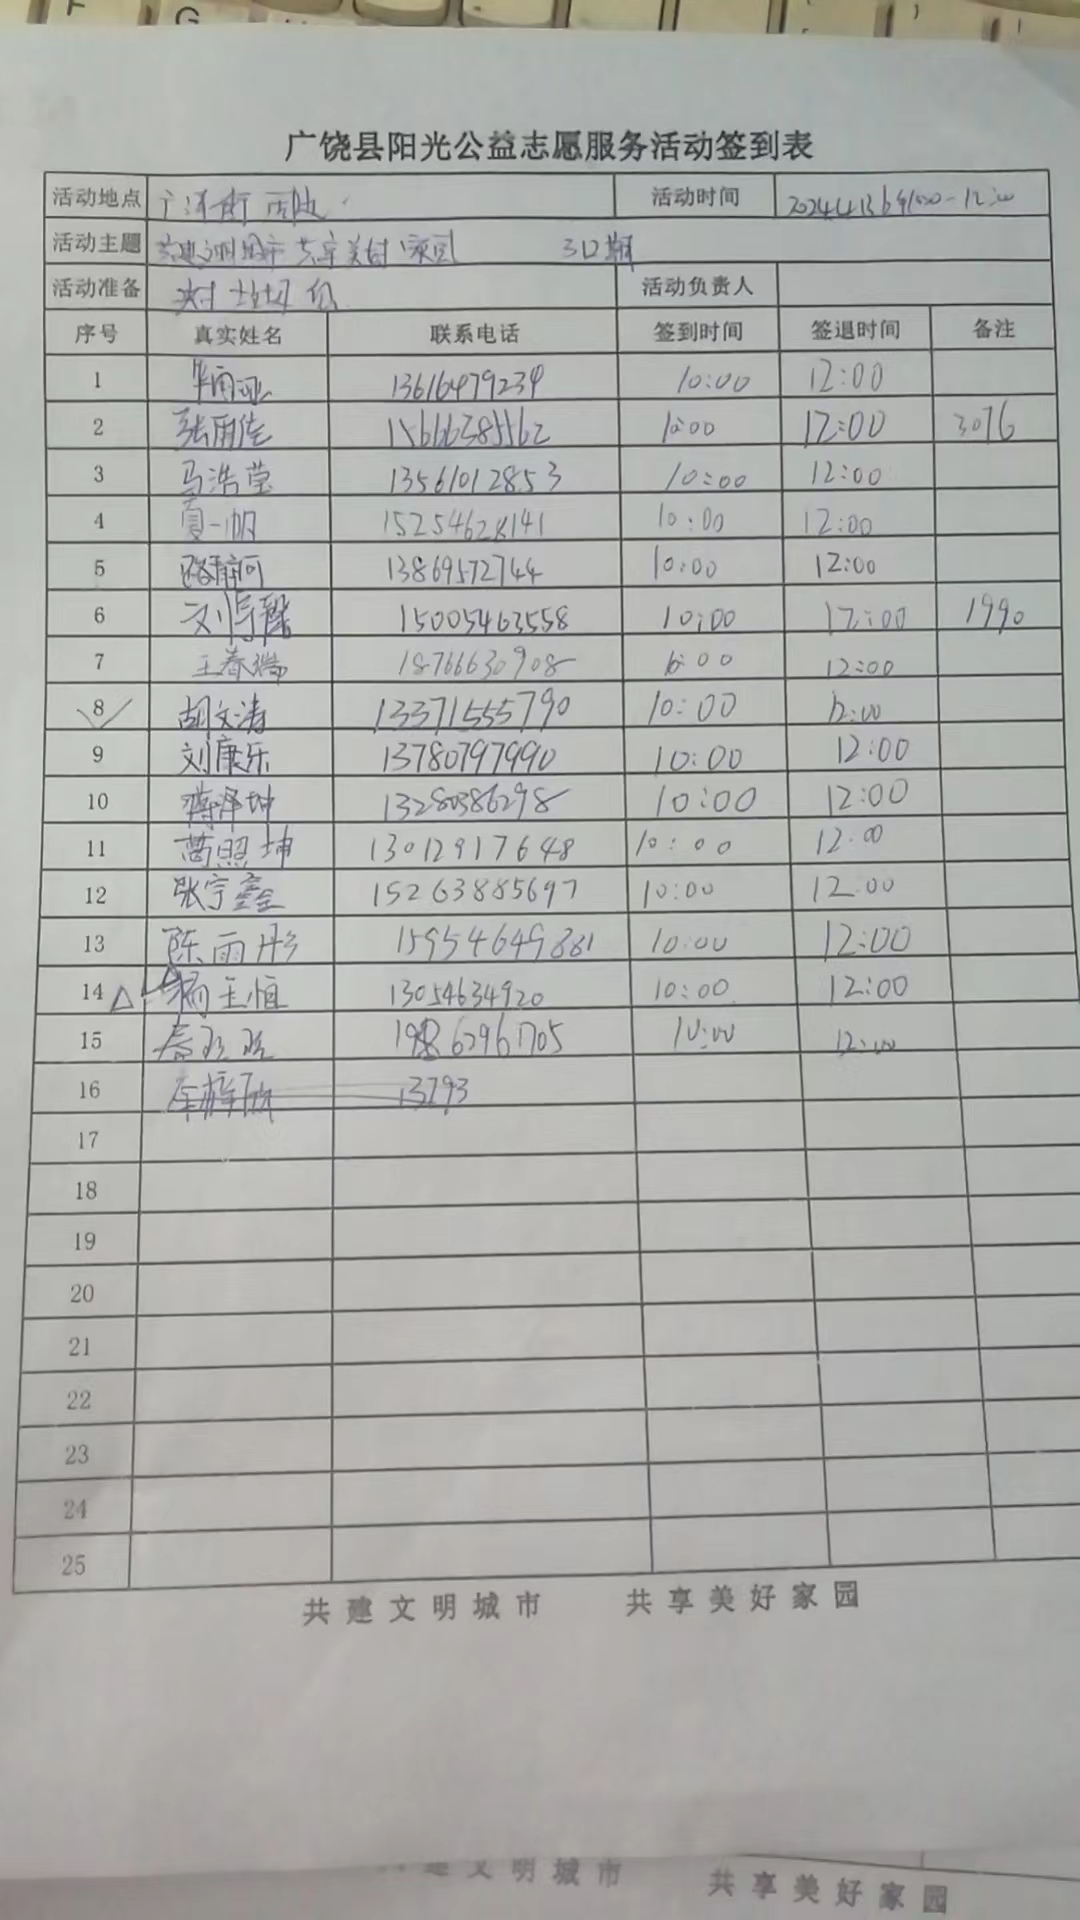 F G
广饶县阳光公益志愿服务活动签到表
活动地点 活动时间
活动主题 共建文明城市 共享美好家园
活动准备 活动负责人
序号 真实姓名 联系电话 签到时间 签退时间 备注
1 13616479234 10:00 12:00
2 张雨佳 15666385562 10:00 12:00 3076
3 马浩莹 13561012853 10:00 12:00
4 夏一帆 15254628141 10:00 12:00
5 路静河 13869572744 10:00 12:00
6 刘宇馨 15005463558 10:00 12:00 1990
7 王春瑞 18766630908 10:00 12:00
8 胡文涛 13371555790 10:00 12:00
9 刘康乐 13780797990 10:00 12:00
10 蒋泽坤 13280386298 10:00 12:00
11 蔄照坤 13012917648 10:00 12:00
12 张宇鑫 15263885697 10:00 12:00
13 陈雨彤 15954649881 10:00 12:00
14 杨玉恒 13054634920 10:00 12:00
15 10:00 12:00
16 13793
17
18
19
20
21
22
23
24
25
共建文明城市 共享美好家园
建文明城市 共享美好家园